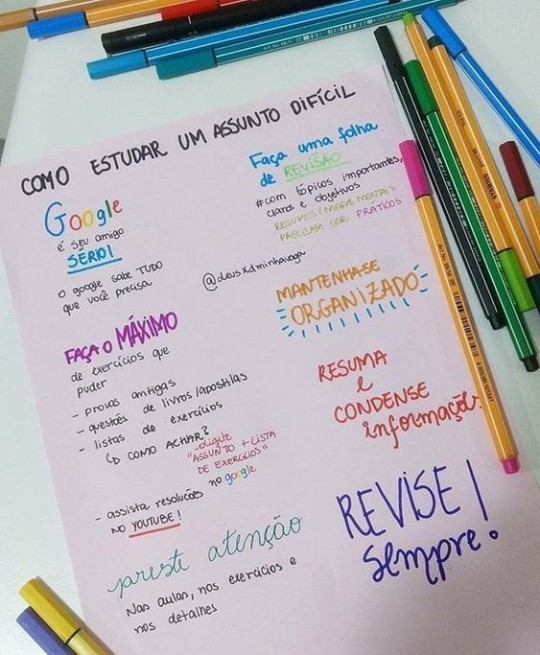 COMO ESTUDAR UM ASSUNTO DIFÍCIL
Google
é seu amigo
SÉRIO!
o google sabe TUDO
que você precisa
FAÇA O MÁXIMO
de exercícios que
puder
- provas antigas
- questões de livros/apostilas
- listas de exercícios
↳ COMO ACHAR?
digite
"ASSUNTO + LISTA
DE EXERCÍCIOS"
no google
- assista resoluções
NO YOUTUBE!
preste atenção
Nas aulas, nos exercícios e
nos detalhes
Faça uma folha
de REVISÃO
#com tópicos importantes,
claros e objetivos
RESUMOS/MAPAS MENTAIS
PRECISAM SER PRÁTICOS
@deusxdminhavaga
MANTENHA-SE
ORGANIZADO
RESUMA
e
CONDENSE
informações.
REVISE!
sempre.